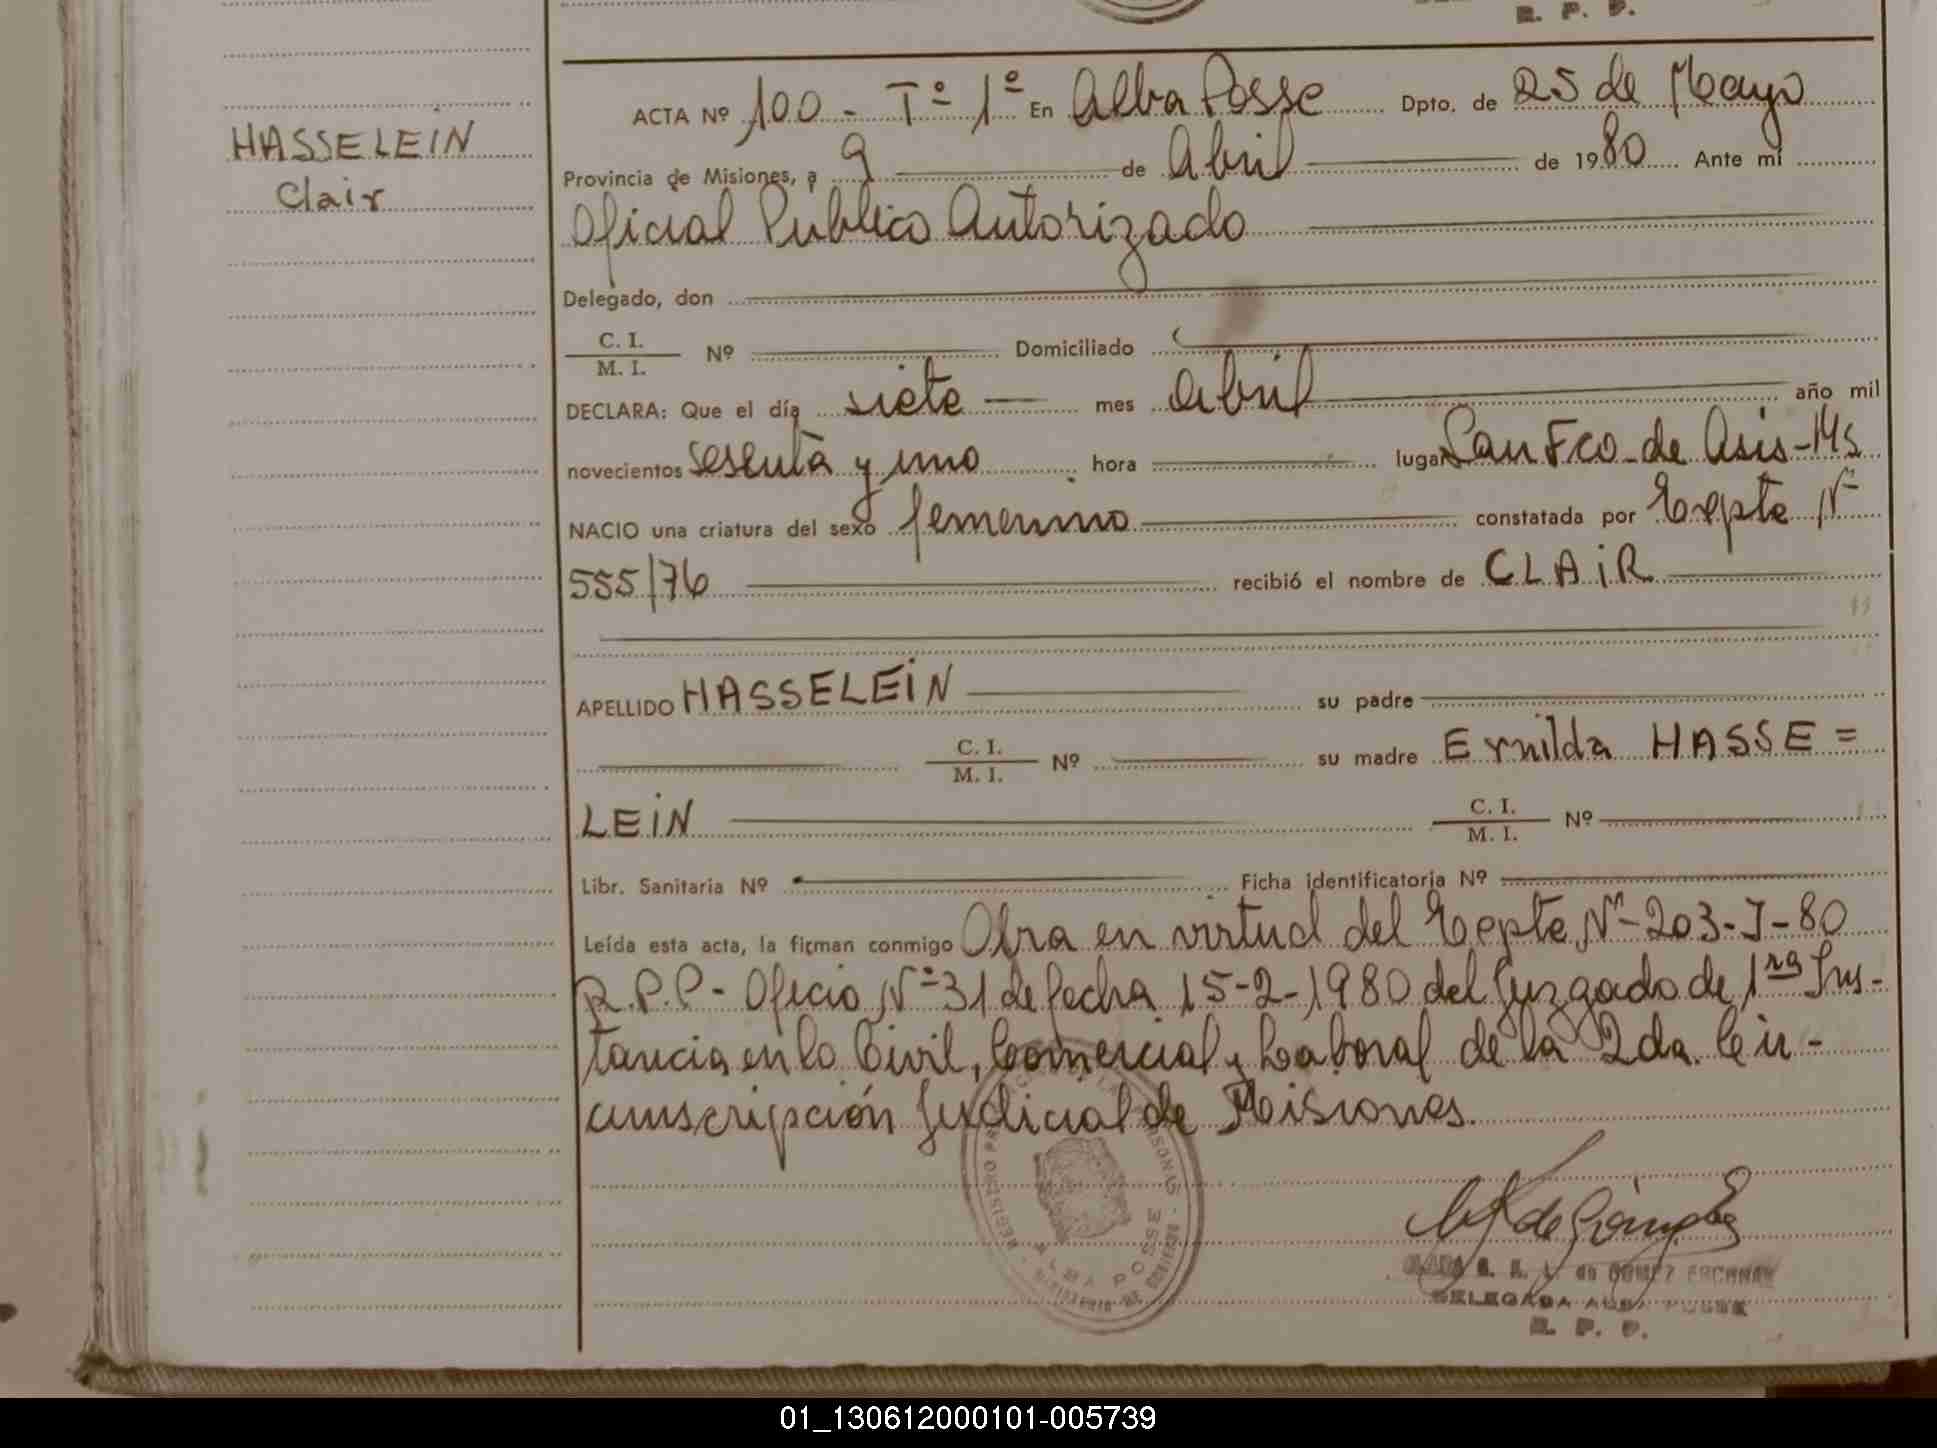 R. P. P.
ACTA Nº 100 - Tº 1º En Alba Posse Dpto. de 25 de Mayo
HASSELEIN
Clair
Provincia de Misiones, a 9 de Abril de 1980 Ante mí
Oficial Publico Autorizado
Delegado, don
C. I.
M. I. Nº Domiciliado
DECLARA: Que el día siete mes abril año mil
novecientos sesenta y uno hora lugar San Fco. de Asis - Ms
NACIO una criatura del sexo femenino constatada por Expte Nº
555/76 recibió el nombre de CLAIR
APELLIDO HASSELEIN su padre
C. I.
M. I. Nº su madre Ernilda HASSE=
LEIN C. I.
M. I. Nº
Libr. Sanitaria Nº Ficha identificatoria Nº
Leída esta acta, la firman conmigo Obra en virtud del Expte Nº-203-J-80
R.P.P.- Oficio Nº 31 de fecha 15-2-1980 del Juzgado de 1ra Ins-
tancia en lo Civil, Comercial y Laboral de la 2da. Cir-
cunscripción Judicial de Misiones.
REGISTRO PERSONAS
ALBA POSSE
de Gómez
de GOMEZ
DELEGADA ALBA POSSE
R. P. P.
01_130612000101-005739